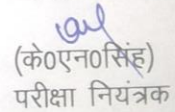 (के०एन०सिंह)
परीक्षा नियंत्रक